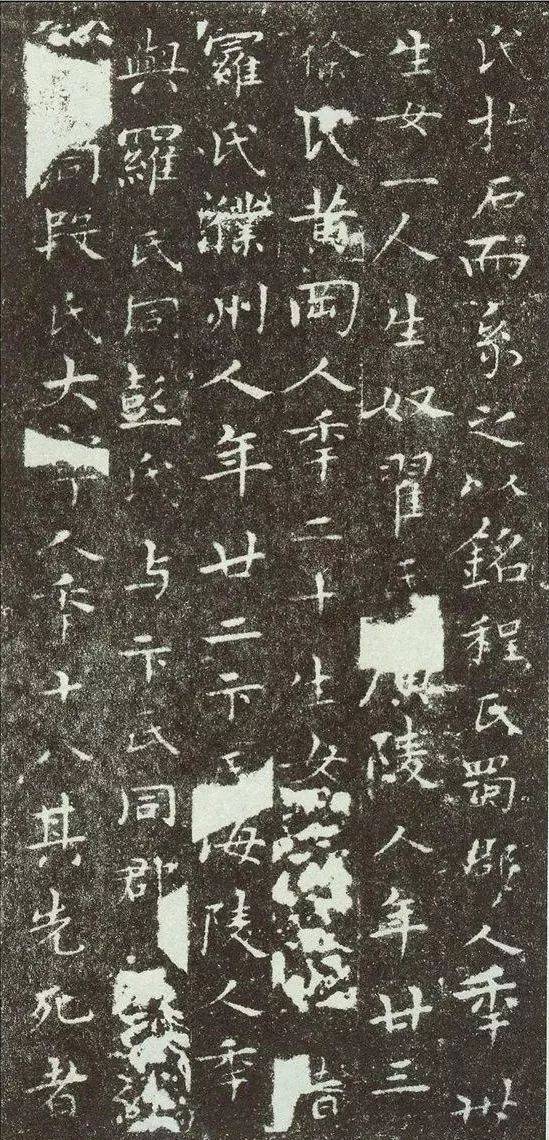 氏扵石而系之以銘程氏蜀郡人秊卅
生女一人生奴翟氏陵人年廿三
徐氏黄岡人秊二十生女昔
羅氏濮州人年廿二卞氏海陵人秊
與羅氏同彭氏与卞氏同郡
同段氏大人秊十八其先死者